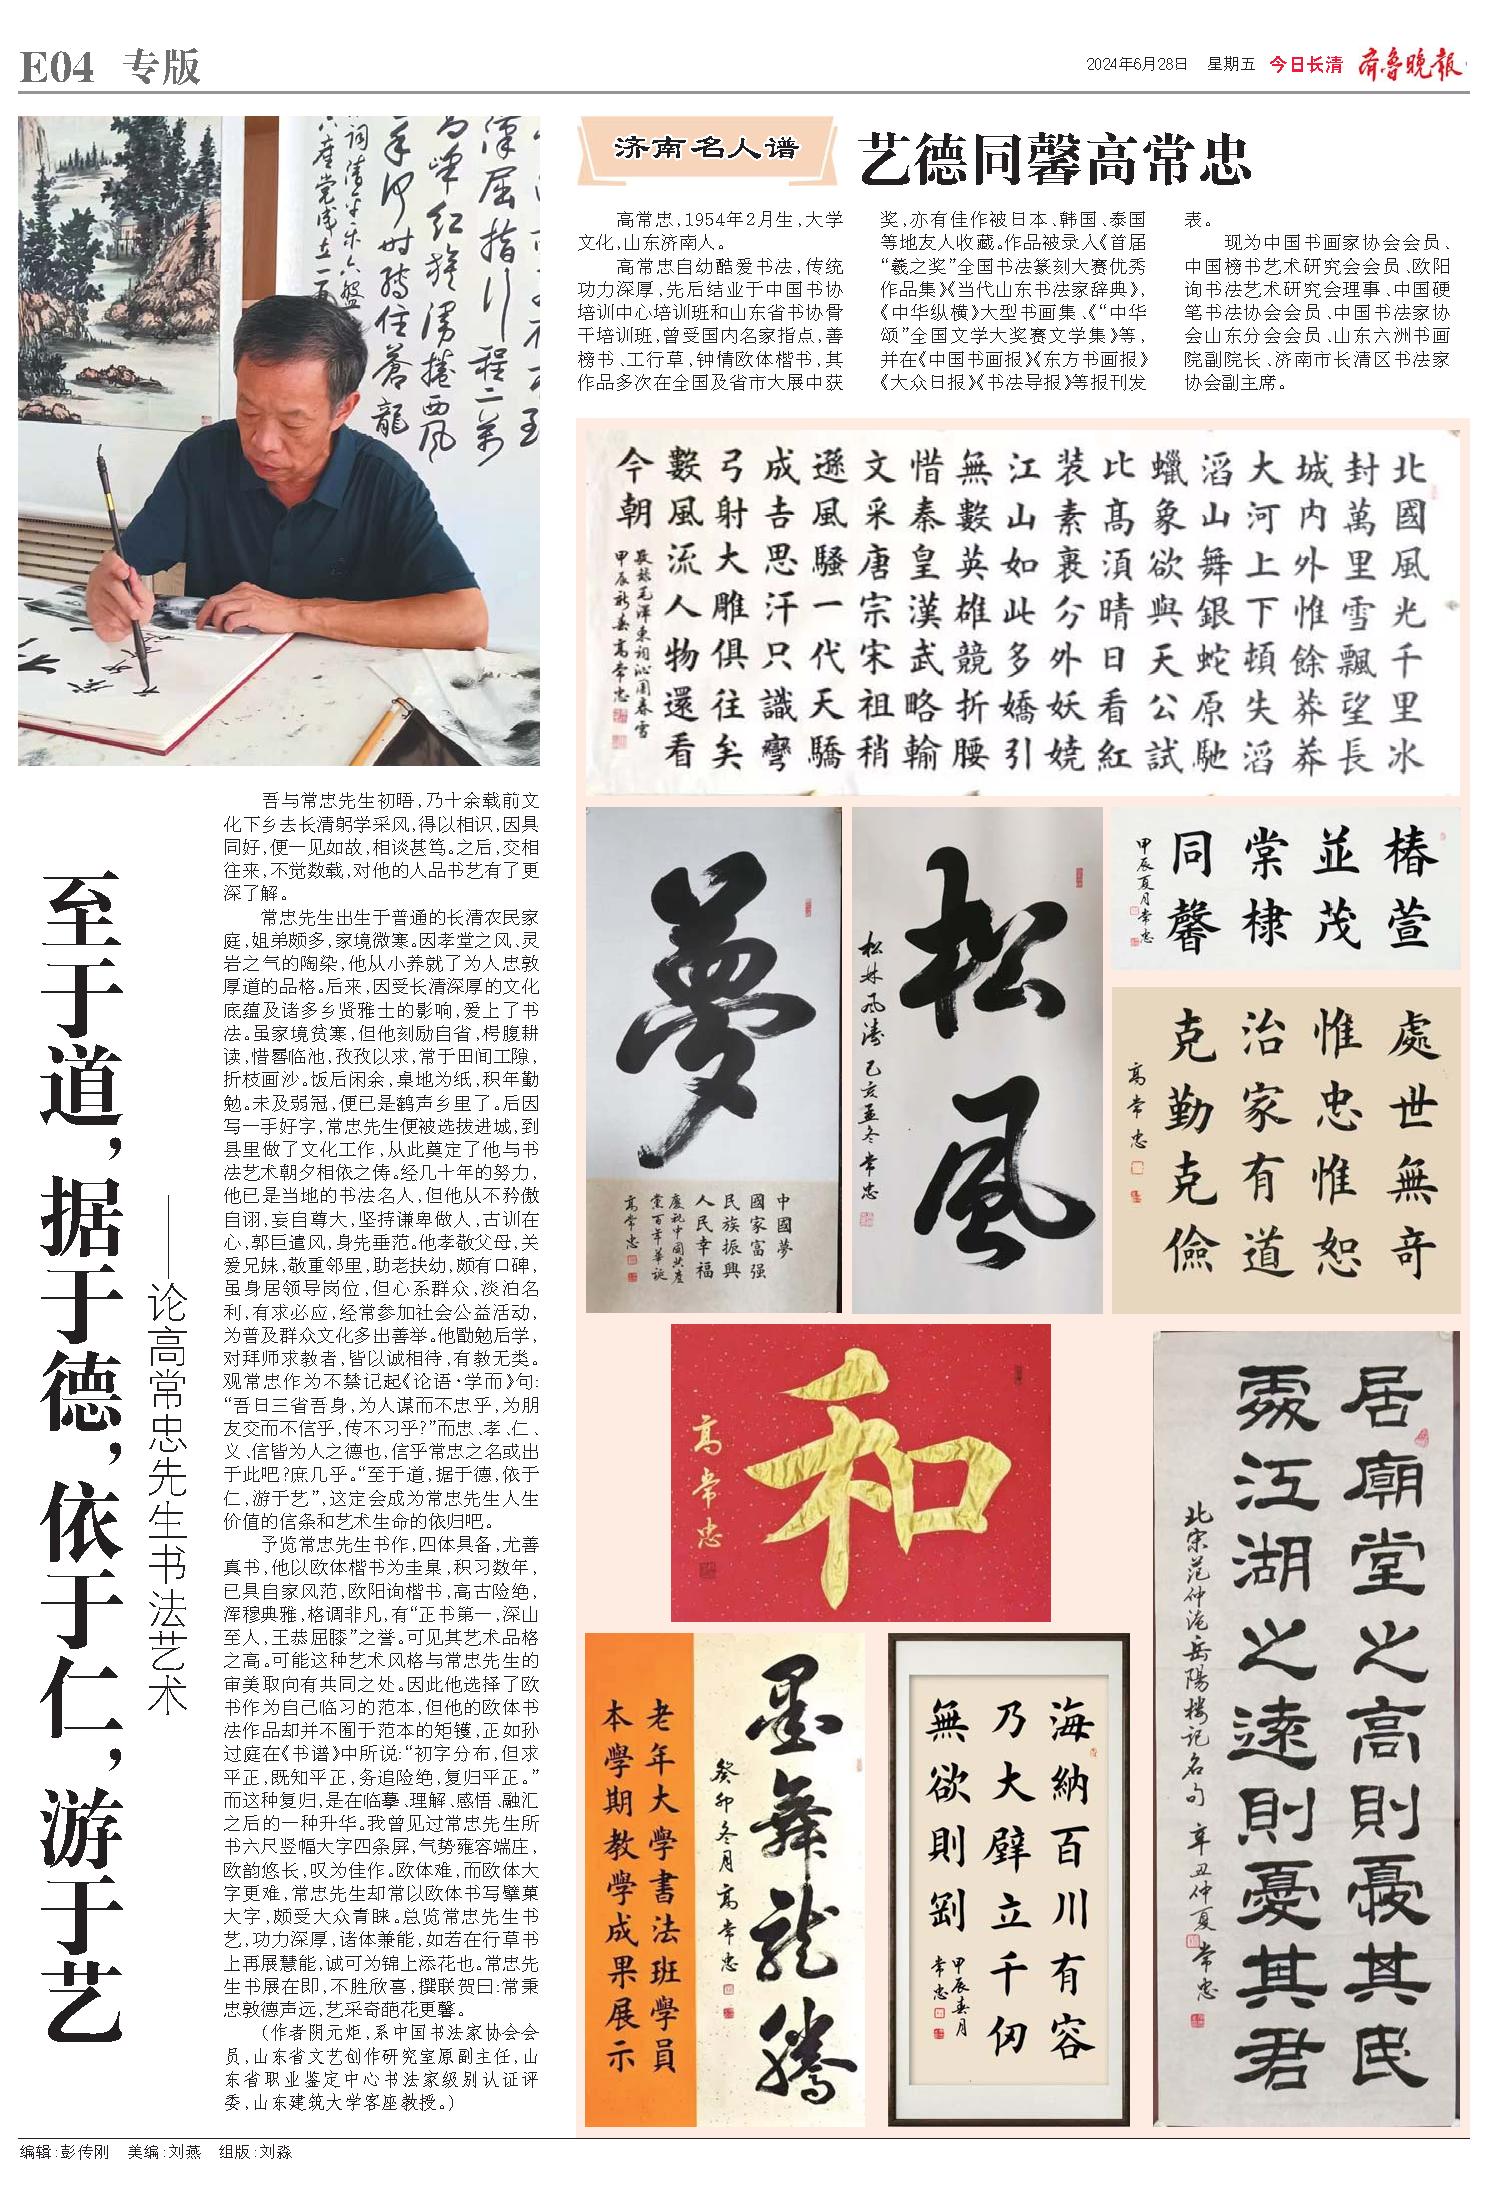 E04 专版
2024年6月28日 星期五 今日长清 齐鲁晚报
济南名人谱
艺德同馨高常忠
高常忠，1954年2月生，大学
文化，山东济南人。
高常忠自幼酷爱书法，传统
功力深厚，先后结业于中国书协
培训中心培训班和山东省书协骨
干培训班，曾受国内名家指点，善
榜书、工行草，钟情欧体楷书，其
作品多次在全国及省市大展中获
奖，亦有佳作被日本、韩国、泰国
等地友人收藏。作品被录入《首届
“羲之奖”全国书法篆刻大赛优秀
作品集》《当代山东书法家辞典》，
《中华纵横》大型书画集、《“中华
颂”全国文学大奖赛文学集》等，
并在《中国书画报》《东方书画报》
《大众日报》《书法导报》等报刊发
表。
现为中国书画家协会会员、
中国榜书艺术研究会会员、欧阳
询书法艺术研究会理事、中国硬
笔书法协会会员、中国书法家协
会山东分会会员、山东六洲书画
院副院长、济南市长清区书法家
协会副主席。
至于道，据于德，依于仁，游于艺
——论高常忠先生书法艺术
吾与常忠先生初晤，乃十余载前文
化下乡去长清躬学采风，得以相识，因具
同好，便一见如故，相谈甚笃。之后，交相
往来，不觉数载，对他的人品书艺有了更
深了解。
常忠先生出生于普通的长清农民家
庭，姐弟颇多，家境微寒。因孝堂之风、灵
岩之气的陶染，他从小养就了为人忠敦
厚道的品格。后来，因受长清深厚的文化
底蕴及诸多乡贤雅士的影响，爱上了书
法。虽家境贫寒，但他刻励自省，枵腹耕
读，惜晷临池，孜孜以求，常于田间工隙，
折枝画沙。饭后闲余，桌地为纸，积年勤
勉。未及弱冠，便已是鹤声乡里了。后因
写一手好字，常忠先生便被选拔进城，到
县里做了文化工作，从此奠定了他与书
法艺术朝夕相依之俦。经几十年的努力，
他已是当地的书法名人，但他从不矜傲
自诩，妄自尊大，坚持谦卑做人，古训在
心，郭巨遣风，身先垂范。他孝敬父母，关
爱兄妹，敬重邻里，助老扶幼，颇有口碑，
虽身居领导岗位，但心系群众，淡泊名
利，有求必应，经常参加社会公益活动，
为普及群众文化多出善举。他勖勉后学，
对拜师求教者，皆以诚相待，有教无类。
观常忠作为不禁记起《论语·学而》句：
“吾日三省吾身，为人谋而不忠乎，为朋
友交而不信乎，传不习乎？”而忠、孝、仁、
义、信皆为人之德也，信乎常忠之名或出
于此吧？庶几乎。“至于道，据于德，依于
仁，游于艺”，这定会成为常忠先生人生
价值的信条和艺术生命的依归吧。
予览常忠先生书作，四体具备，尤善
真书，他以欧体楷书为圭臬，积习数年，
已具自家风范，欧阳询楷书，高古险绝，
浑穆典雅，格调非凡，有“正书第一，深山
至人，王恭屈膝”之誉。可见其艺术品格
之高。可能这种艺术风格与常忠先生的
审美取向有共同之处。因此他选择了欧
书作为自己临习的范本，但他的欧体书
法作品却并不囿于范本的矩镬，正如孙
过庭在《书谱》中所说：“初字分布，但求
平正，既知平正，务追险绝，复归平正。”
而这种复归，是在临摹、理解、感悟、融汇
之后的一种升华。我曾见过常忠先生所
书六尺竖幅大字四条屏，气势雍容端庄，
欧韵悠长，叹为佳作。欧体难，而欧体大
字更难，常忠先生却常以欧体书写擘菓
大字，颇受大众青睐。总览常忠先生书
艺，功力深厚，诸体兼能，如若在行草书
上再展慧能，诚可为锦上添花也。常忠先
生书展在即，不胜欣喜，撰联贺曰：常秉
忠敦德声远，艺采奇葩花更馨。
（作者阴元炬，系中国书法家协会会
员，山东省文艺创作研究室原副主任，山
东省职业鉴定中心书法家级别认证评
委，山东建筑大学客座教授。）
北國風光千里冰
封萬里雪飄望長
城内外惟餘莽莽
大河上下頓失滔
滔山舞銀蛇原馳
蠟象欲與天公試
比高須晴日看紅
装素裹分外妖娆
江山如此多嬌引
無數英雄競折腰
惜秦皇漢武略輸
文采唐宗宋祖稍
遜風騷一代天驕
成吉思汗只識彎
弓射大雕俱往矣
數風流人物還看
今朝
敬录毛澤東詞沁園春雪
甲辰新春高常忠
夢
中國夢
國家富强
民族振興
人民幸福
慶祝中國共産
黨百年華誕
高常忠
松風
松林風濤 己亥孟冬常忠
椿萱
並茂
棠棣
同馨
甲辰夏月常忠
處世無奇
惟忠惟恕
治家有道
克勤克儉
高常忠
和
高常忠
居廟堂之高則憂其民
處江湖之遠則憂其君
北宋范仲淹岳陽楼記名句 辛丑仲夏常忠
墨舞龍騰
癸卯冬月高常忠
老年大學書法班學員
本學期教學成果展示
海納百川有容
乃大壁立千仞
無欲則剛
甲辰春月
常忠
编辑：彭传刚 美编：刘燕 组版：刘淼